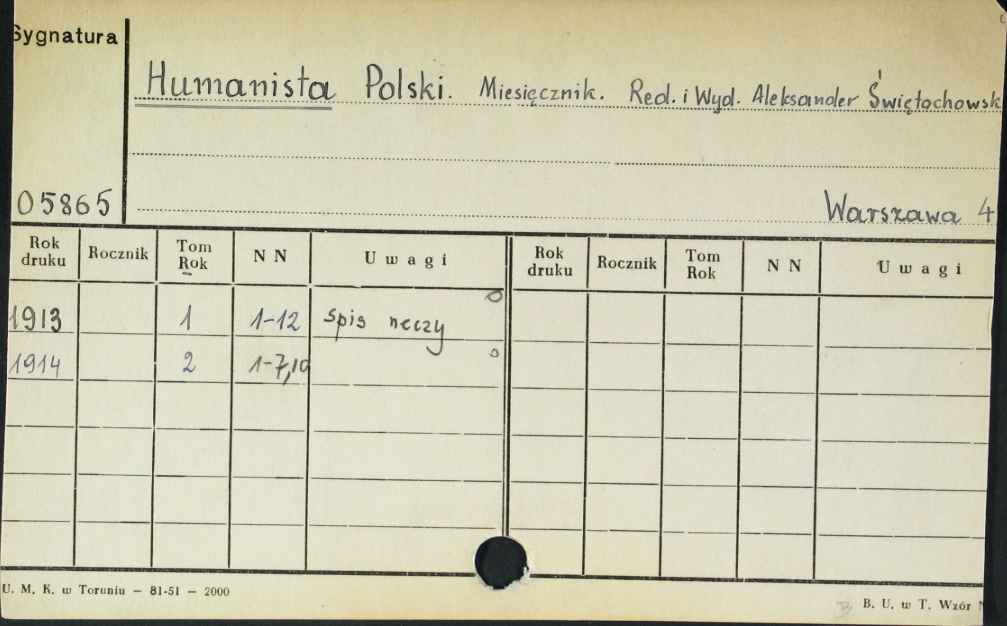 Sygnatura
Humanista Polski. Miesięcznik. Red. i Wyd. Aleksander Świętochowsk
05865
Warszawa 4
Rok druku Rocznik Tom Rok N N Uwagi Rok druku Rocznik Tom Rok N N Uwagi
1913 1 1-12 spis rzeczy
1914 2 1-7,10
U. M. K. w Toruniu — 81-51 — 2000
B. U. w T. Wzór